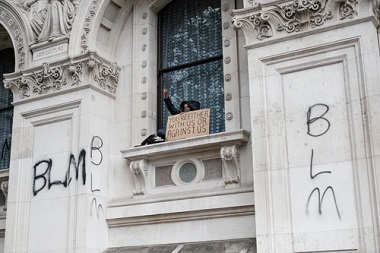 YOU'RE EITHER
WITH US OR
AGAINST US
BLM
B
L
M
B
L
M